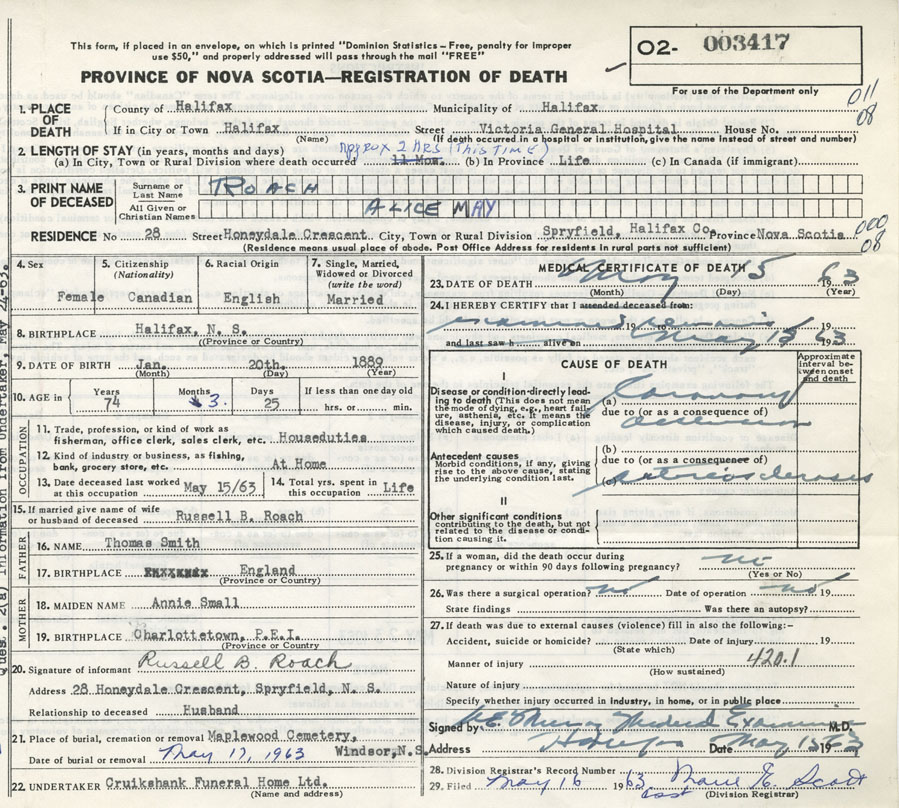 This form, if placed in an envelope, on which is printed "Dominion Statistics – Free, penalty for improper
use $50," and properly addressed will pass through the mail "FREE"
PROVINCE OF NOVA SCOTIA—REGISTRATION OF DEATH
02- 003417
For use of the Department only
011
08
1. PLACE OF DEATH
County of Halifax Municipality of Halifax
If in City or Town Halifax Street Victoria General Hospital House No.
(Name) (If death occurred in a hospital or institution, give the name instead of street and number)
2. LENGTH OF STAY (in years, months and days) Approx 2 HRS (THIS TIME)
(a) In City, Town or Rural Division where death occurred 11 Mow. (b) In Province Life (c) In Canada (if immigrant)
3. PRINT NAME OF DECEASED
Surname or Last Name ROACH
All Given or Christian Names ALICE MAY
RESIDENCE No 28 Street Honeydale Crescent. City, Town or Rural Division Spryfield, Halifax Co. Province Nova Scotia
000
08
(Residence means usual place of abode. Post Office Address for residents in rural parts not sufficient)
4. Sex
Female
5. Citizenship (Nationality)
Canadian
6. Racial Origin
English
7. Single, Married, Widowed or Divorced (write the word)
Married
8. BIRTHPLACE Halifax, N. S.
(Province or Country)
9. DATE OF BIRTH Jan. 20th. 1889
(Month) (Day) (Year)
10. AGE in Years 74 Months 3. Days 25 If less than one day old hrs. or min.
OCCUPATION
11. Trade, profession, or kind of work as
fisherman, office clerk, sales clerk, etc. Houseduties
12. Kind of industry or business, as fishing,
bank, grocery store, etc. At Home
13. Date deceased last worked at this occupation May 15/63
14. Total yrs. spent in this occupation Life
15. If married give name of wife
or husband of deceased Russell B. Roach
FATHER
16. NAME Thomas Smith
17. BIRTHPLACE England
(Province or Country)
MOTHER
18. MAIDEN NAME Annie Small
19. BIRTHPLACE Charlottetown, P.E.I.
(Province or Country
20. Signature of informant Russell B. Roach
Address 28 Honeydale Crescent, Spryfield, N. S.
Relationship to deceased Husband
21. Place of burial, cremation or removal Maplewood Cemetery,
Windsor, N.S.
Date of burial or removal May 17, 1963
22. UNDERTAKER Cruikshank Funeral Home Ltd.
(Name and address)
Ques. 2(a) Information from Undertaker, May 24-63.
MEDICAL CERTIFICATE OF DEATH
23. DATE OF DEATH May 15 1963
(Month) (Day) (Year)
24. I HEREBY CERTIFY that I attended deceased from:
examined 19 remains 19
and last saw h alive on May 15 1963
CAUSE OF DEATH
Approximate interval between onset and death
I
Disease or condition directly leading to death (This does not mean the mode of dying, e.g., heart failure, asthenia, etc. It means the disease, injury, or complication which caused death.)
(a) Coronary
due to (or as a consequence of)
occlusion
Antecedent causes
Morbid conditions, if any, giving rise to the above cause, stating the underlying condition last.
(b)
due to (or as a consequence of)
(c) arteriosclerosis
II
Other significant conditions
contributing to the death, but not related to the disease or condition causing it.
25. If a woman, did the death occur during
pregnancy or within 90 days following pregnancy? no
(Yes or No)
26. Was there a surgical operation? no Date of operation no 19
State findings Was there an autopsy?
27. If death was due to external causes (violence) fill in also the following:–
Accident, suicide or homicide? Date of injury 19
(State which)
Manner of injury 420.1
(How sustained)
Nature of injury
Specify whether injury occurred in industry, in home, or in public place
Signed by Medical Examiner M.D.
Address Halifax Date May 15 1963
28. Division Registrar's Record Number
29. Filed May 16 1963
(Division Registrar)